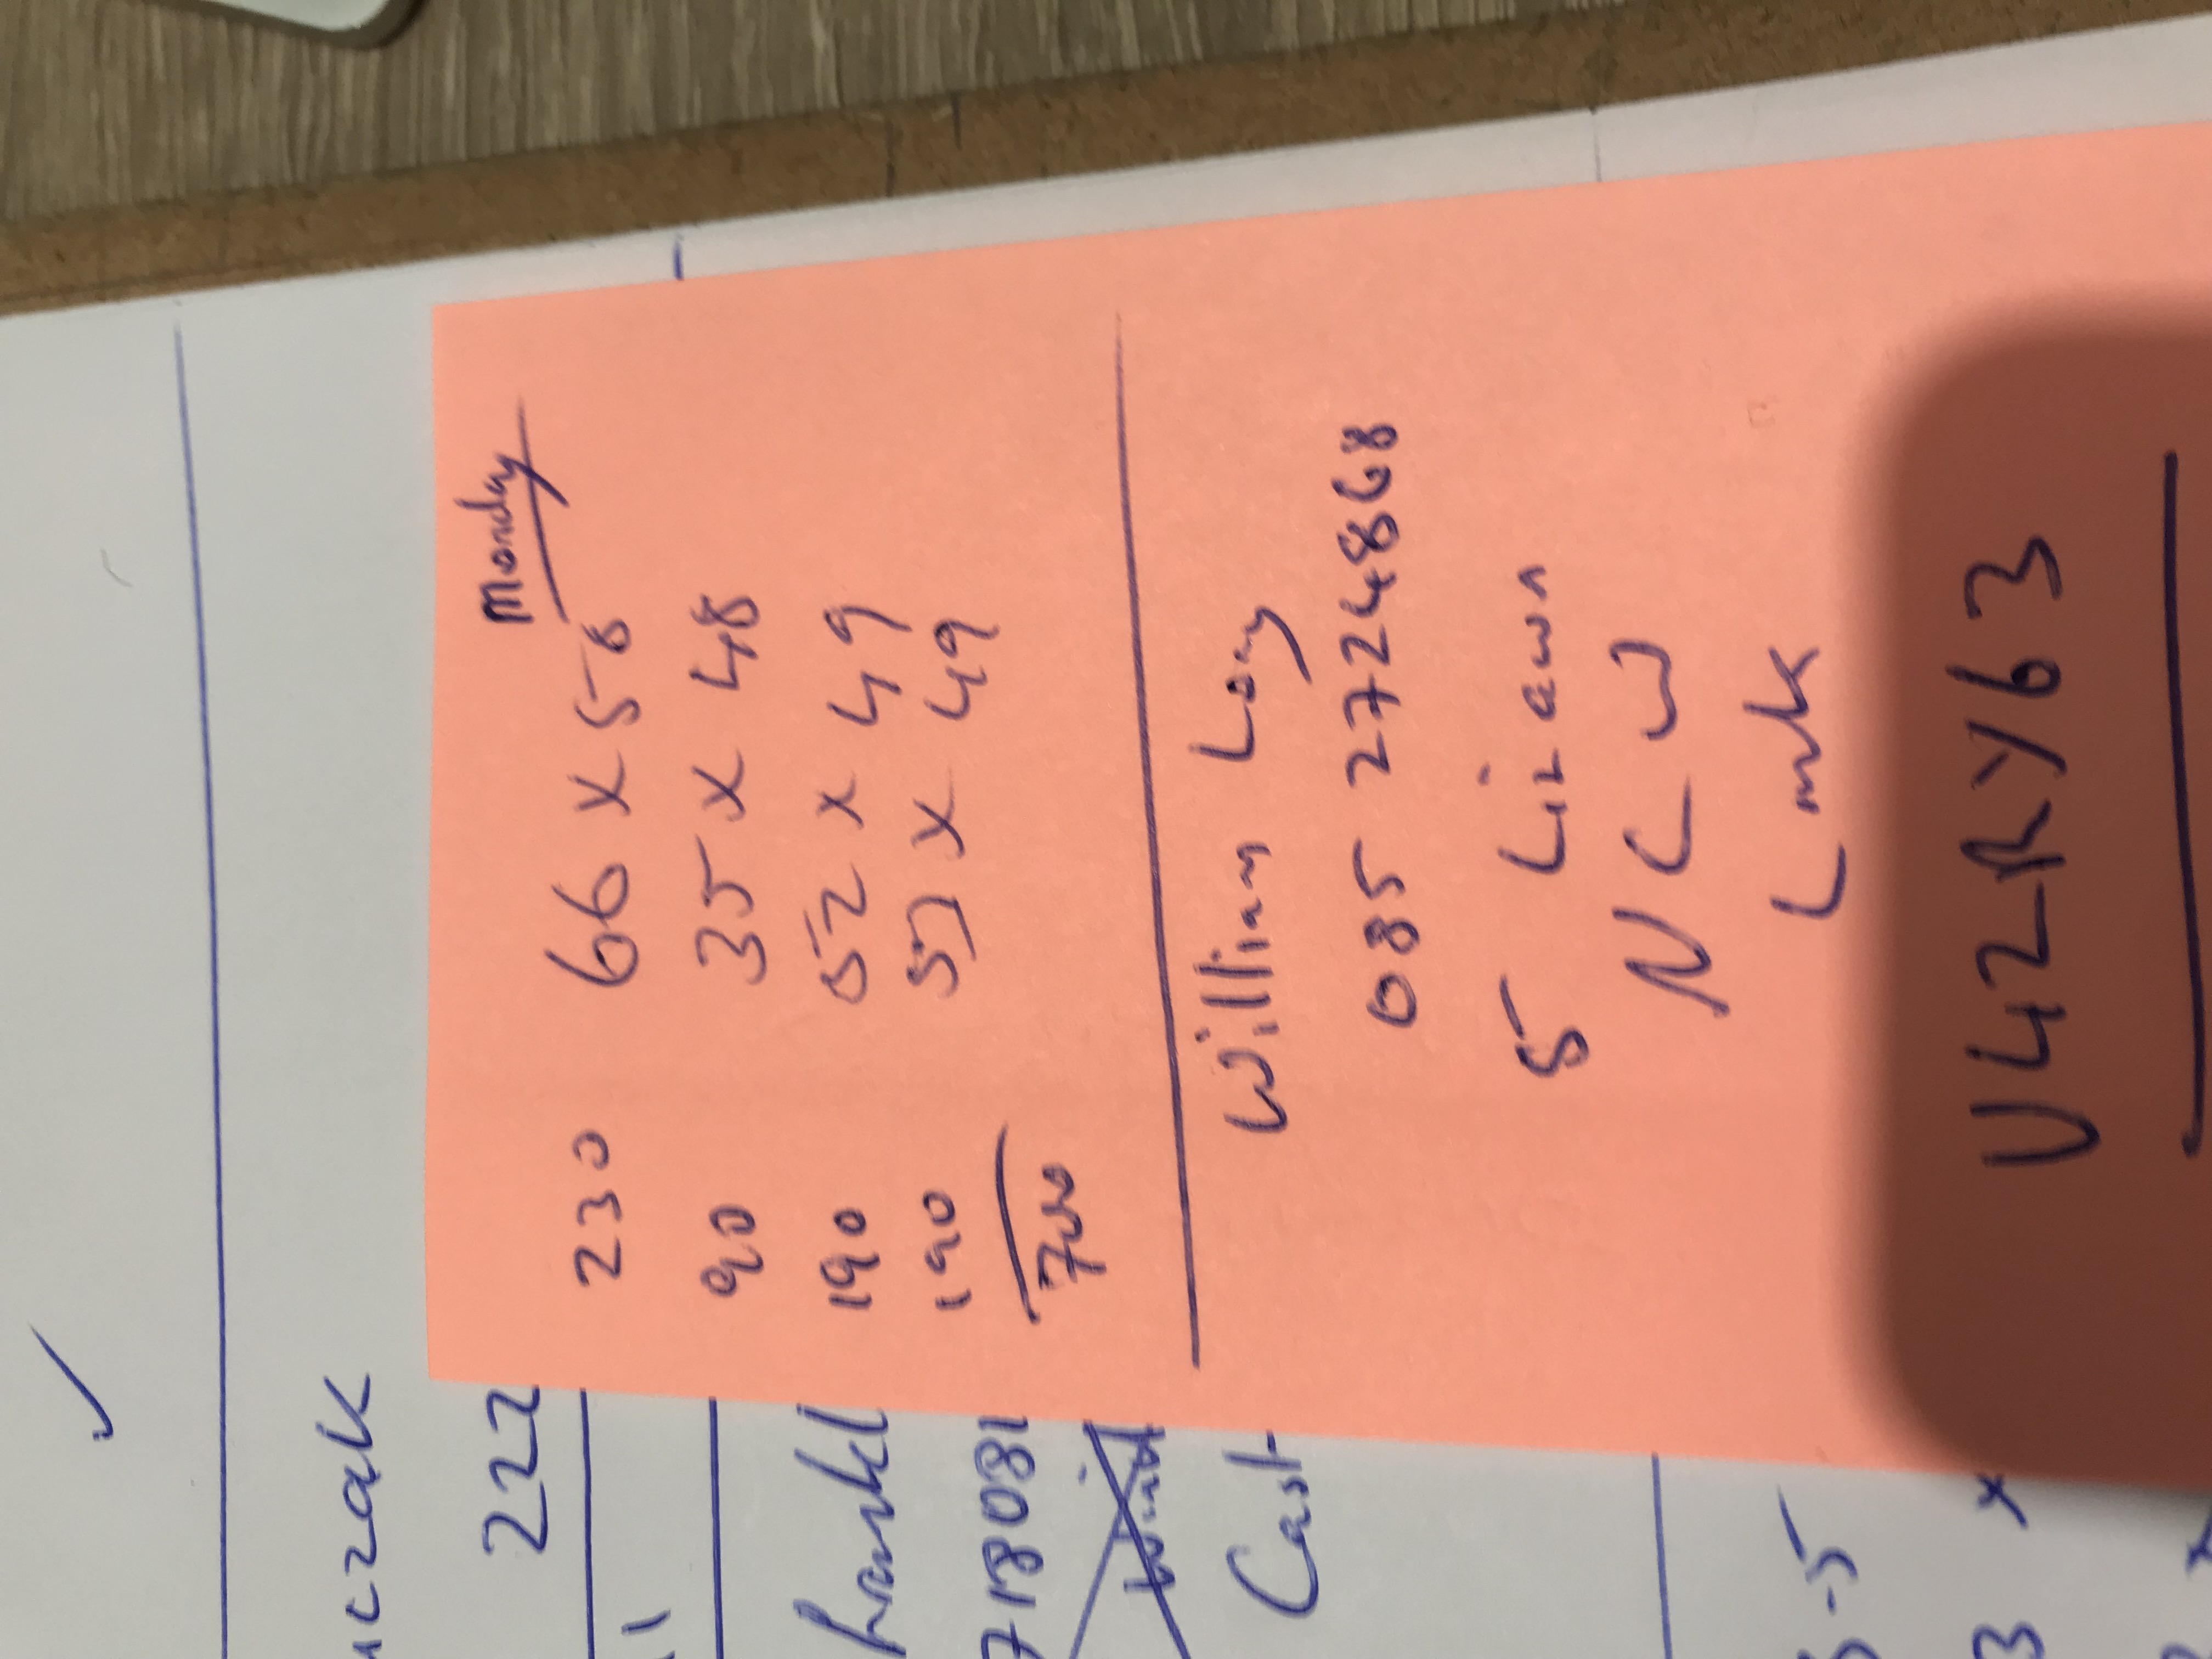 Monday
230 66 x 56
90 35 x 48
190 52 x 49
190 x 49
700
William Long
085 2724868
5 Lizawn
N C W
Lmk
V42RY63
222
718081
Cash